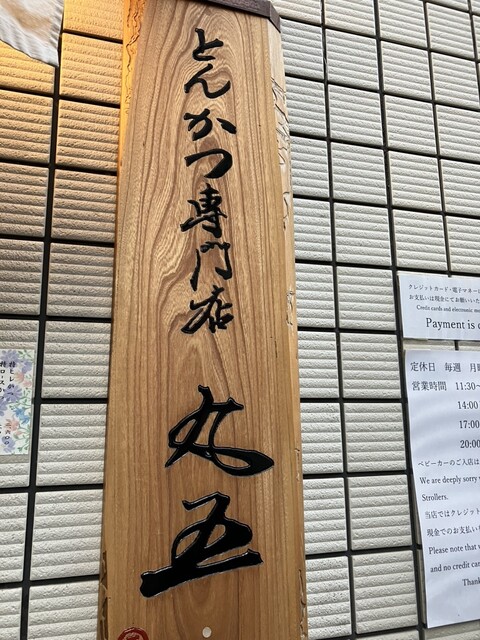 とんかつ専門店
丸五
クレジットカード・電子マネー
お支払いは現金にてお願いいた
Credit cards and electronic
Payment is
定休日 毎週 月
営業時間 11:30～
14:00
17:00
20:00
ベビーカーのご入店は
We are deeply sorry
Strollers.
当店ではクレジット
現金でのお支払い
Please note that
and no credit
Thank
特ヒレかつ
特ロースか